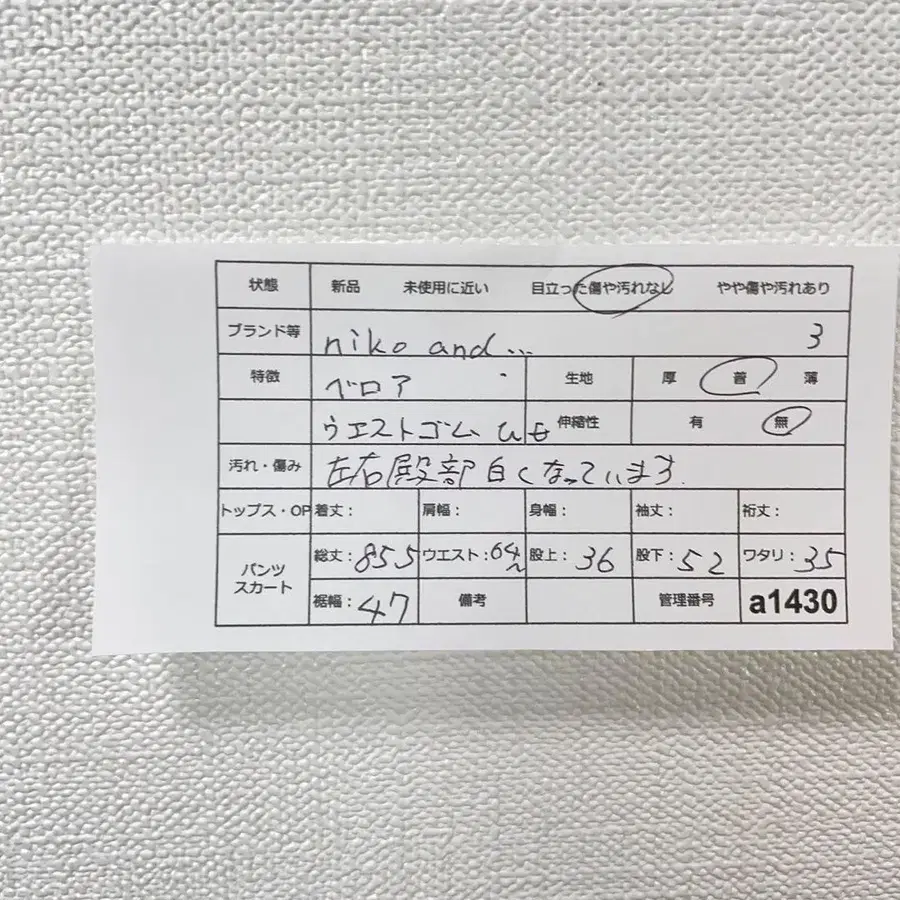 状態 新品 未使用に近い 目立った傷や汚れなし やや傷や汚れあり
ブランド等 niko and... 3
特徴 ベロア 生地 厚 普 薄
ウエストゴム ひも 伸縮性 有 無
汚れ・傷み 左右殿部白くなっています.
トップス・OP 着丈: 肩幅: 身幅: 袖丈: 裄丈:
パンツ スカート 総丈:85.5 ウエスト:64~ 股上:36 股下:52 ワタリ:35
裾幅:47 備考 管理番号 a1430